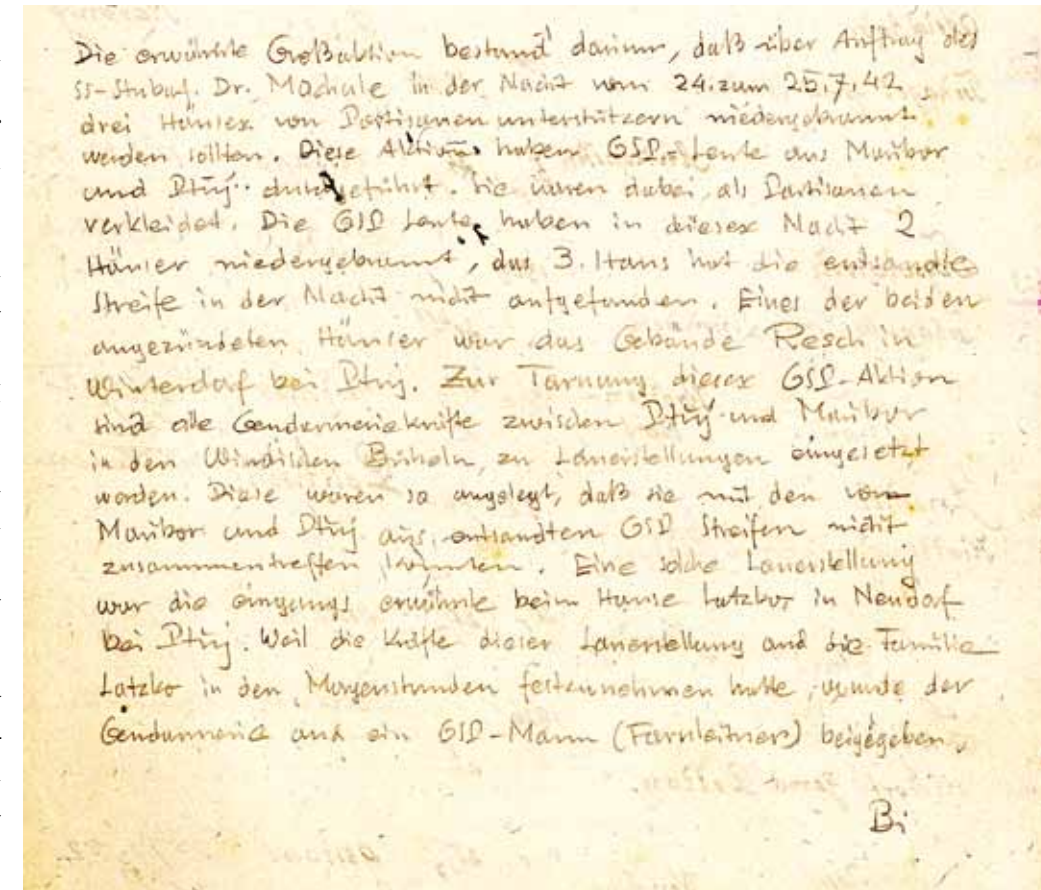 Die erwähnte Großaktion bestand darinn, daß über Auftrag des
SS-Stubaf. Dr. Machule in der Nacht vom 24. zum 25.7.42
drei Häuser von Partisanenunterstützern niedergebrannt
werden sollten. Diese Aktion haben GSP-Leute aus Maribor
und Ptuj durchgeführt. Sie waren dabei als Partisanen
verkleidet. Die GSP Leute haben in dieser Nacht 2
Häuser niedergebrannt, das 3. Haus hat die entsandte
Streife in der Nacht nicht aufgefunden. Eines der beiden
angezündeten Häuser war das Gebäude Resch in
Winterdorf bei Ptuj. Zur Tarnung dieser GSP-Aktion
sind alle Gendarmeriekräfte zwischen Ptuj und Maribor
in den Windischen Büheln, zu Lauerstellungen eingesetzt
worden. Diese waren so angelegt, daß sie mit den von
Maribor und Ptuj aus entsandten GSP Streifen nicht
zusammentreffen konnten. Eine solche Lauerstellung
war die eingangs erwähnte beim Hause Latzko, in Neudorf
bei Ptuj. Weil die Kräfte dieser Lauerstellung auch die Familie
Latzko in den Morgenstunden festzunehmen hatte, wurde der
Gendarmerie auch ein GSP-Mann (Farnleitner) beigegeben.
Bi